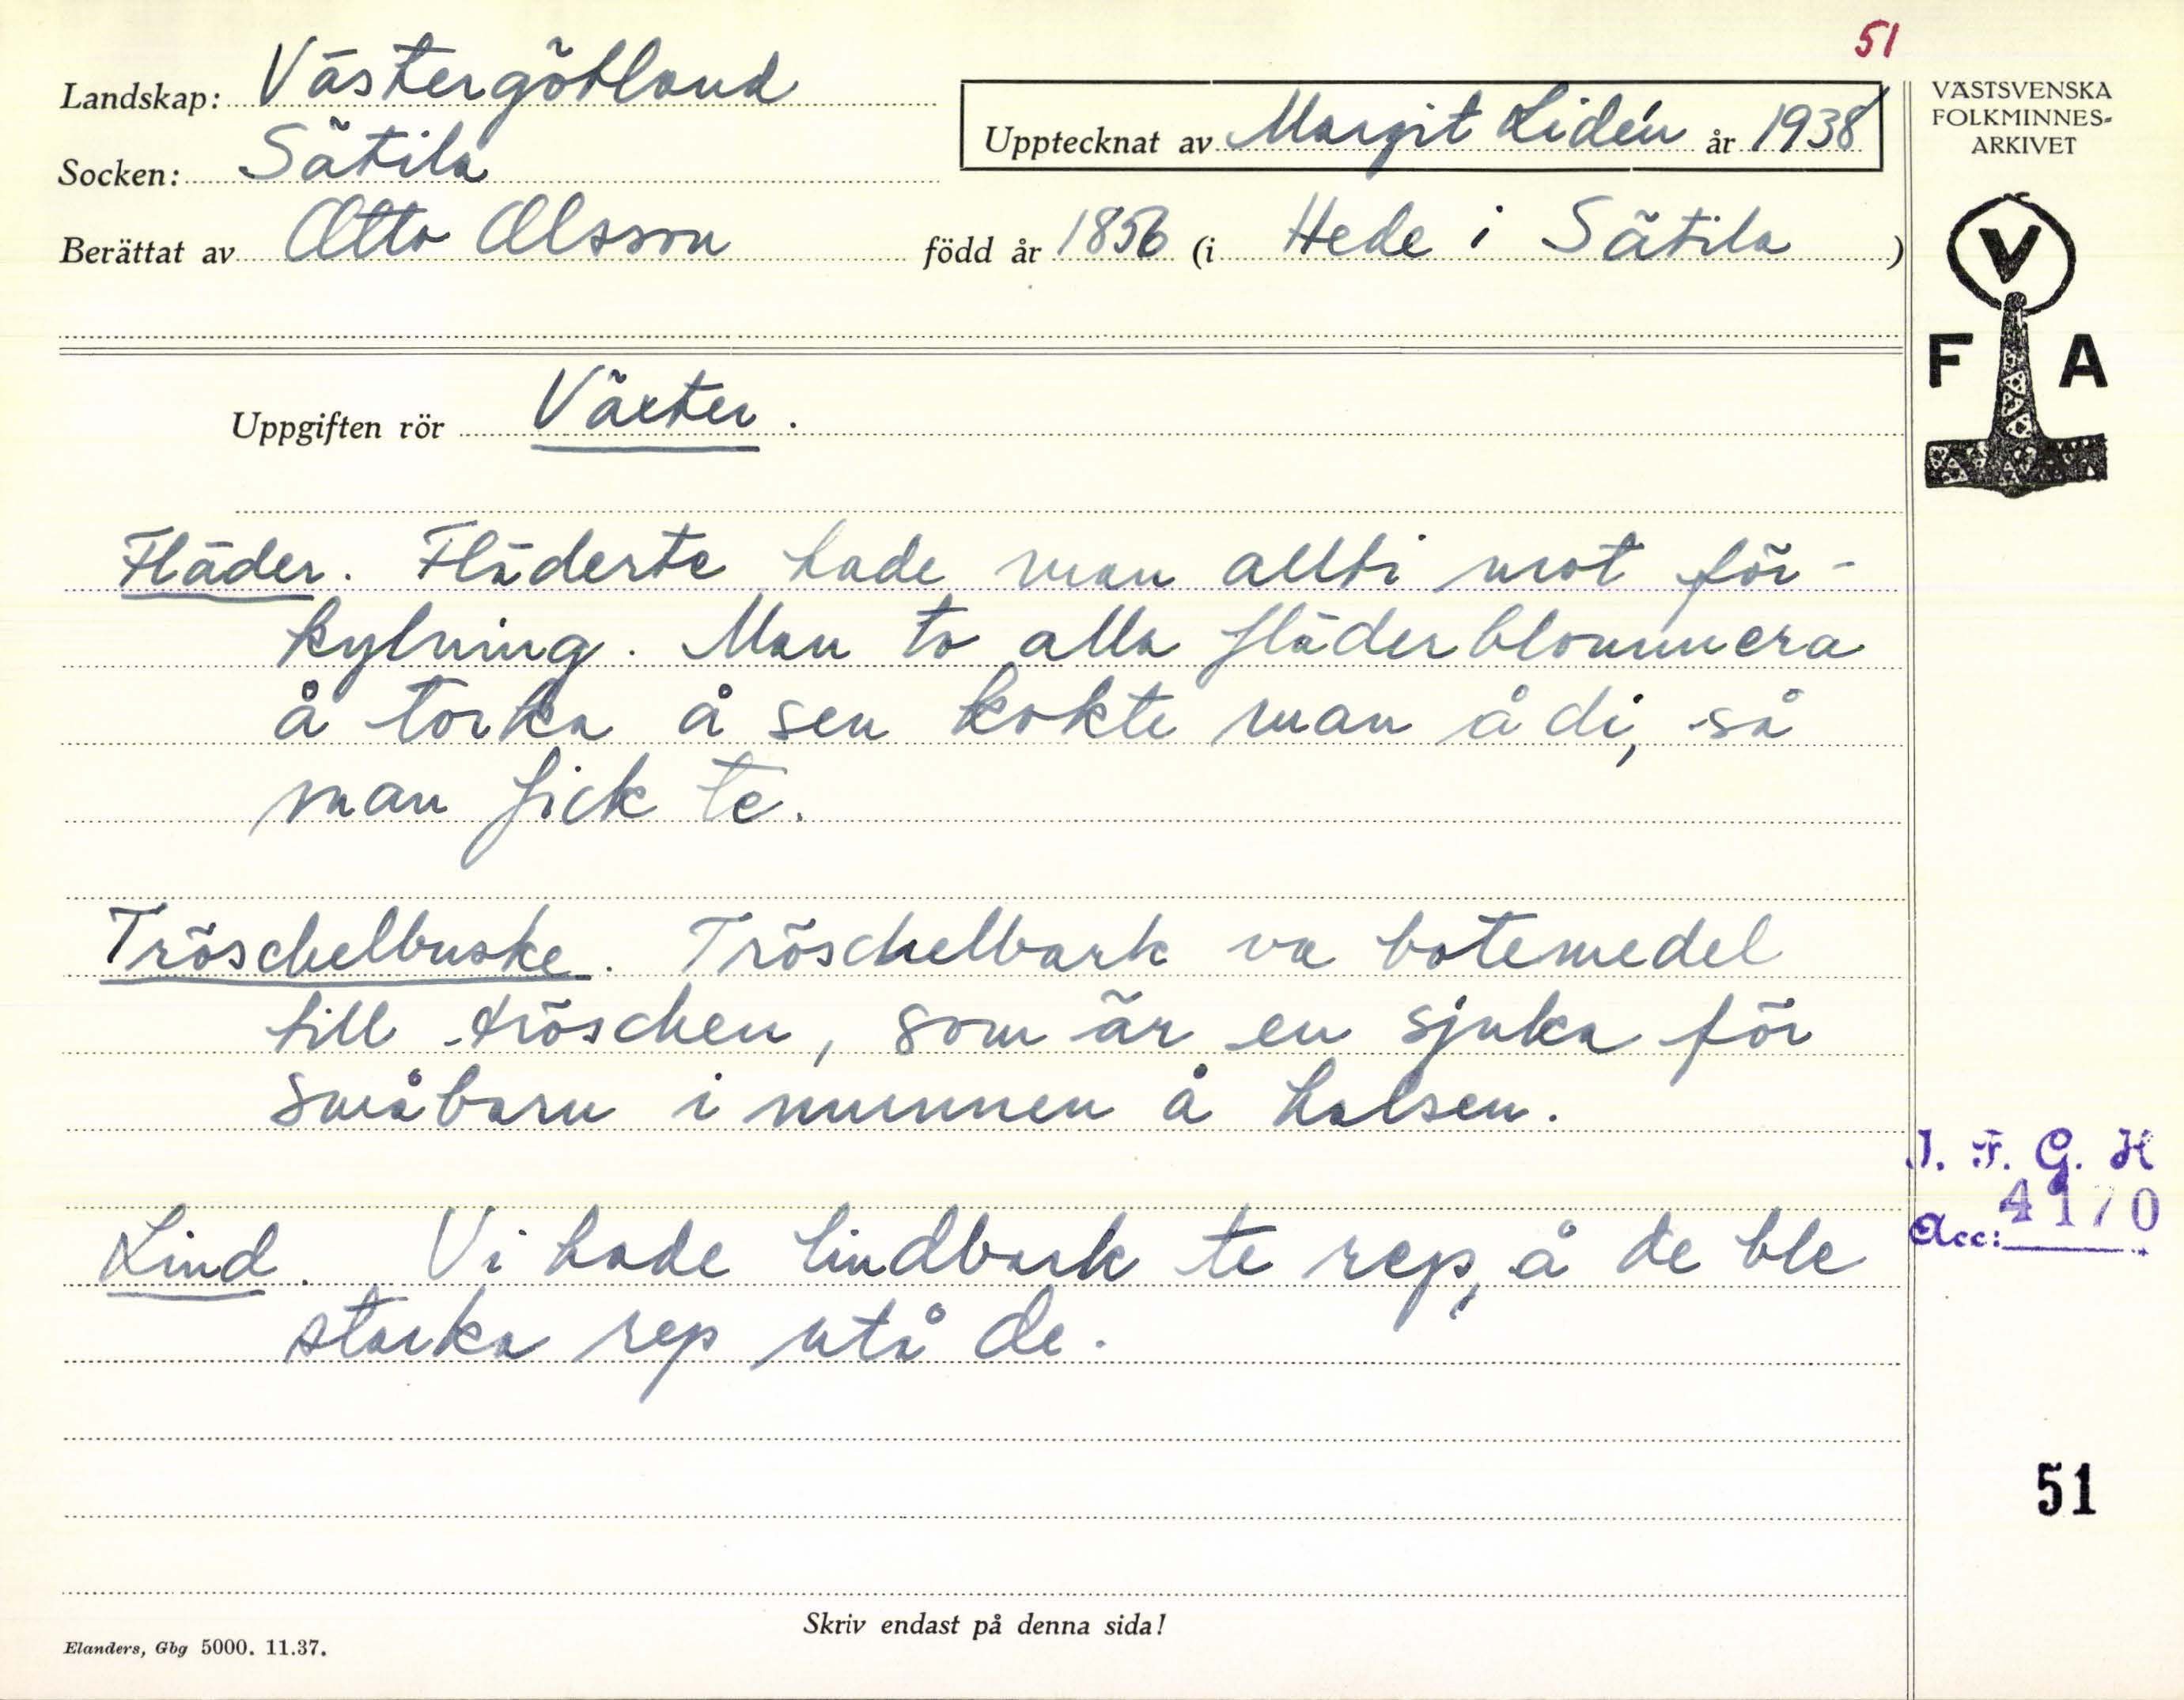 51
Landskap: Västergötland
Socken: Sätila
Upptecknat av Margit Lidén år 1938
Berättat av Otto Olsson född år 1856 (i Hede i Sätila )
VÄSTSVENSKA
FOLKMINNES-
ARKIVET
V
F A
Uppgiften rör Växter.
Fläder. Fläderte hade man allti mot för-
kylning. Man to alla fläderblommera
å torka å sen kokte man å di, så
man fick te.
Tröschelbuske. Tröschelbark va botemedel
till tröschen, som är en sjuka för
småbarn i munnen å halsen.
Lind. Vi hade lindbark te rep, å de ble
starka rep utå de.
I. F. G. H
Acc: 4170
51
Skriv endast på denna sida!
Elanders, Gbg 5000. 11.37.